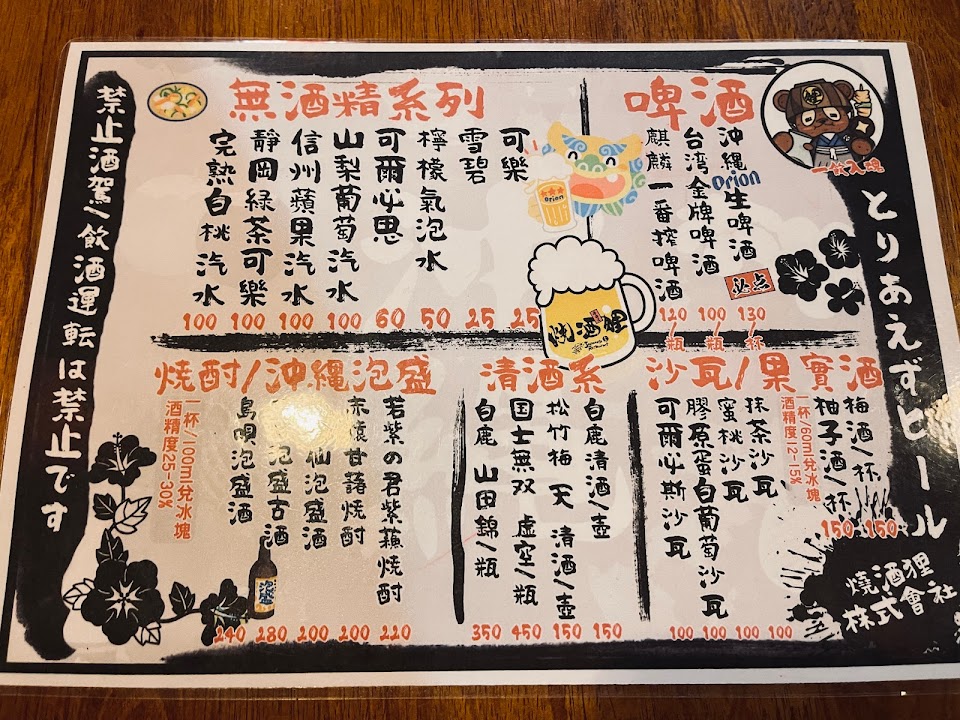 一飲入魂
とりあえずビール
啤酒
沖縄orion生啤酒
必点
130/杯
台湾金牌啤酒
100/瓶
麒麟一番搾啤酒
120/瓶
orion
燒酒狸
無酒精系列
可樂
25
雪碧
25
檸檬氣泡水
50
可爾必思
60
山梨葡萄汽水
100
信州蘋果汽水
100
靜岡綠茶可樂
100
完熟白桃汽水
100
沙瓦/果實酒
梅酒/杯
150
柚子酒/杯
150
一杯/60ml兌冰塊
酒精度12-15%
抹茶沙瓦
100
蜜桃沙瓦
100
膠原蛋白葡萄沙瓦
100
可爾必斯沙瓦
100
清酒系
白鹿清酒/壺
150
松竹梅 天 清酒/壺
150
国士無双 虛空/瓶
450
白鹿 山田錦/瓶
350
燒酎/沖縄泡盛
若紫の君紫蘇燒酎
220
赤猿甘藷燒酎
200
仙泡盛酒
200
泡盛古酒
280
島唄泡盛酒
240
一杯/100ml兌冰塊
酒精度25-30%
燒酒狸
株式會社
禁止酒駕/飲酒運転は禁止です